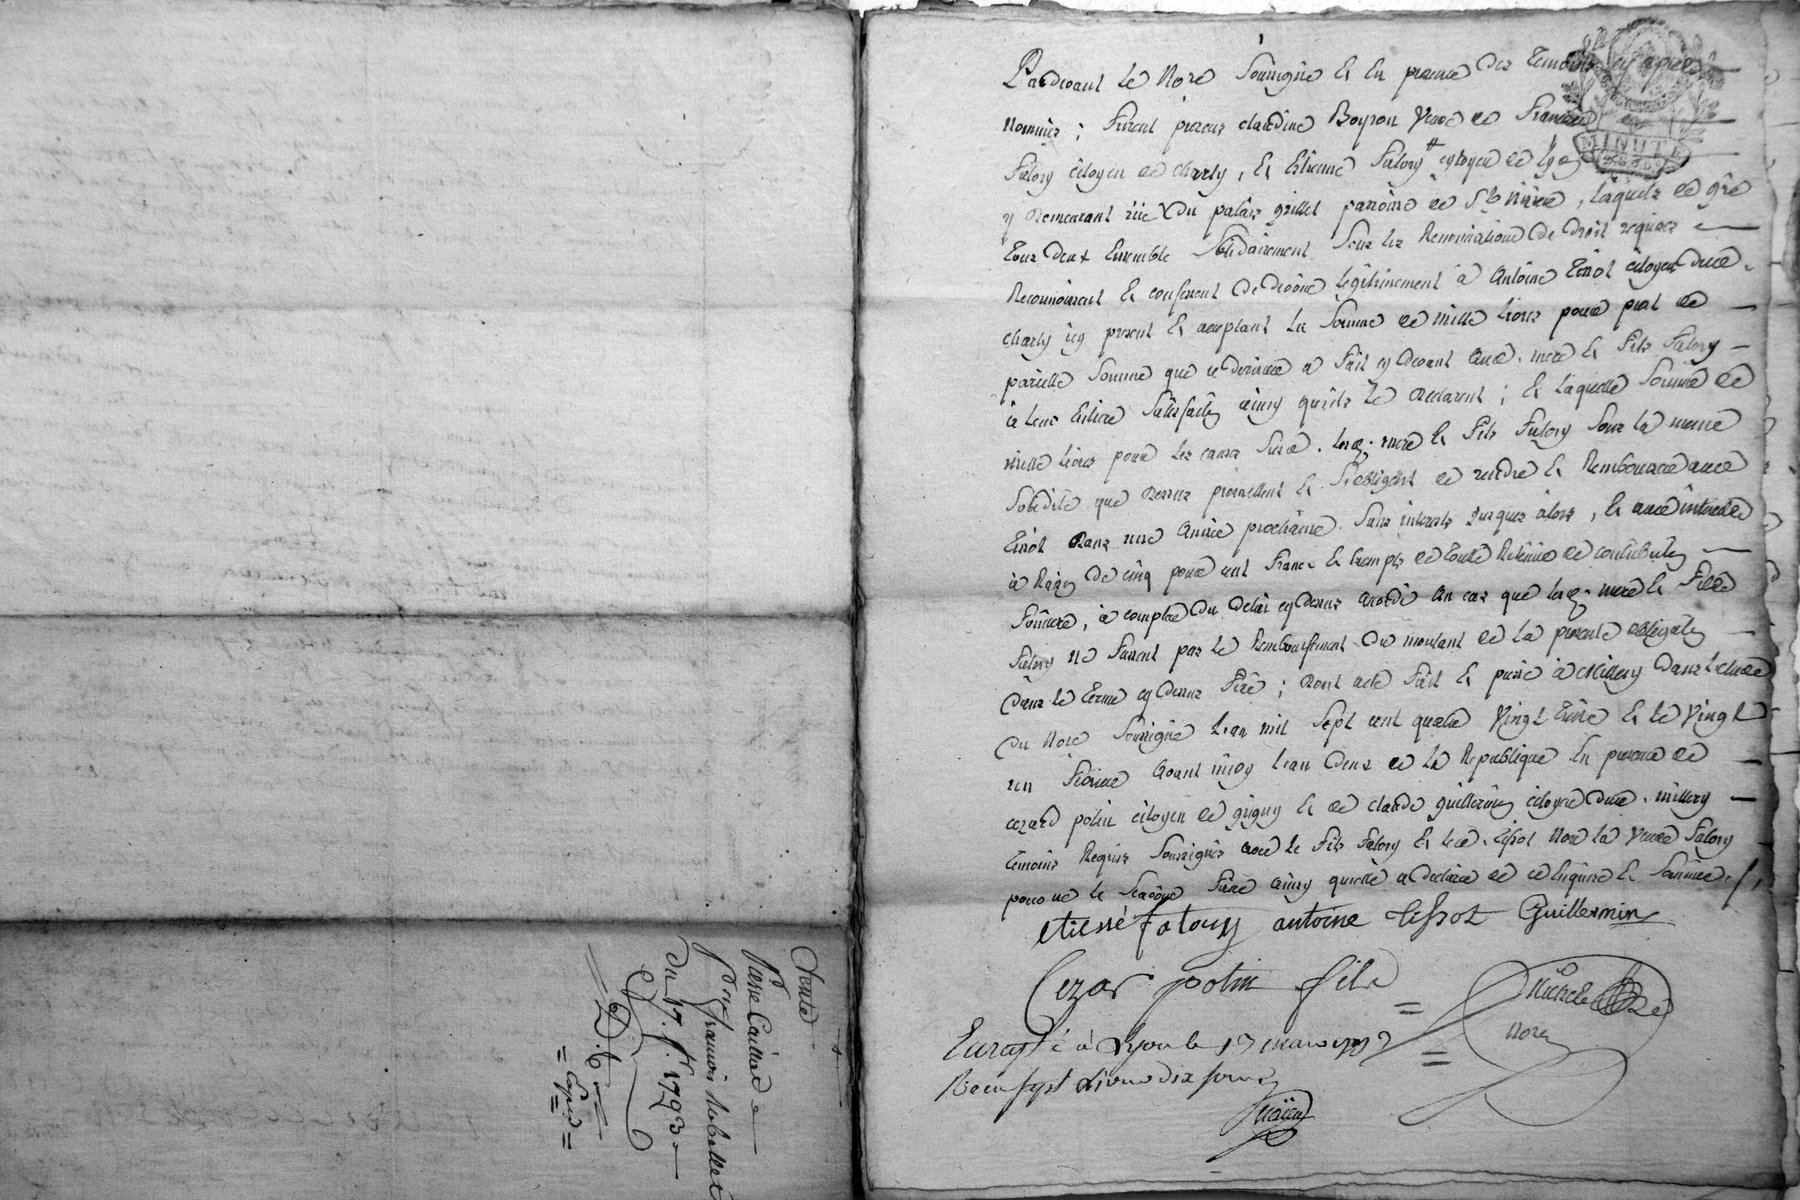 Vente
Pierre Caillat
pour francois Robellet
du 17. fr. 1793
D. 6
Expédé
MINUTE
Pardevant le Nore Soussigné Et En presence des temoins cy apres
Nommés ; furent presens claudine Boyron veuve de Francois
Falouy citoyen de charly, Et Etienne Falouy citoyen de lyon
y Demeurant rüe Du palais grillet parroisse de St Nizier, lesquels de gré
tous deux Ensemble Solidairement Sous les Renonciations De Droit requises
Reconnoissent Et confessent De devoir legitimement à Antoine tissot citoyen dud.
charly icy present Et acceptant la Somme de mille livres pour pret de
pareille Somme que ce dernier a fait cy devant aud. mere Et fils Falouy
à leur Entiere Satisfacon ainsy qu'ils le declarent ; Et laquelle Somme de
mille livres pour les causes susd. lesd. mere Et fils Falouy Sous la meme
Solidité que dessus promettent Et S'obligent de rendre Et Rembourser aud.
tissot dans une Année prochaine Sans interets jusques alors, Et avec interets
à Raison De cinq pour cent Francs Et Exempts de toutte Retenüe de contribution
fonciere, à compter Du Delai cy dessus accordé au cas que lesd. mere Et fils
Falouy ne fassent pas le Remboursement du montant de la presente obligation
dans le terme cy dessus fixé ; Dont acte fait Et passé à Millery Dans l'etude
Du Nore Soussigné l'an mil Sept cent quatre Vingt treize Et le Vingt
un fevrier avant midy l'an deux de la Republique En presence de
cezard potin citoyen de grigny Et de claude guillermin citoyen dud. millery
temoins Requis Soussignés avec le fils Falouy Et led. tissot Non la veuve Falouy
pour ne le Scavoir faire ainsy qu'elle a declaré de ce Enquise Et Sommée
etiene falouy antoine tissot Guillermin
Cezar potin fils
Nore
Enregistré à Lyon le 17 mars 1793
Recu sept livres dix sous